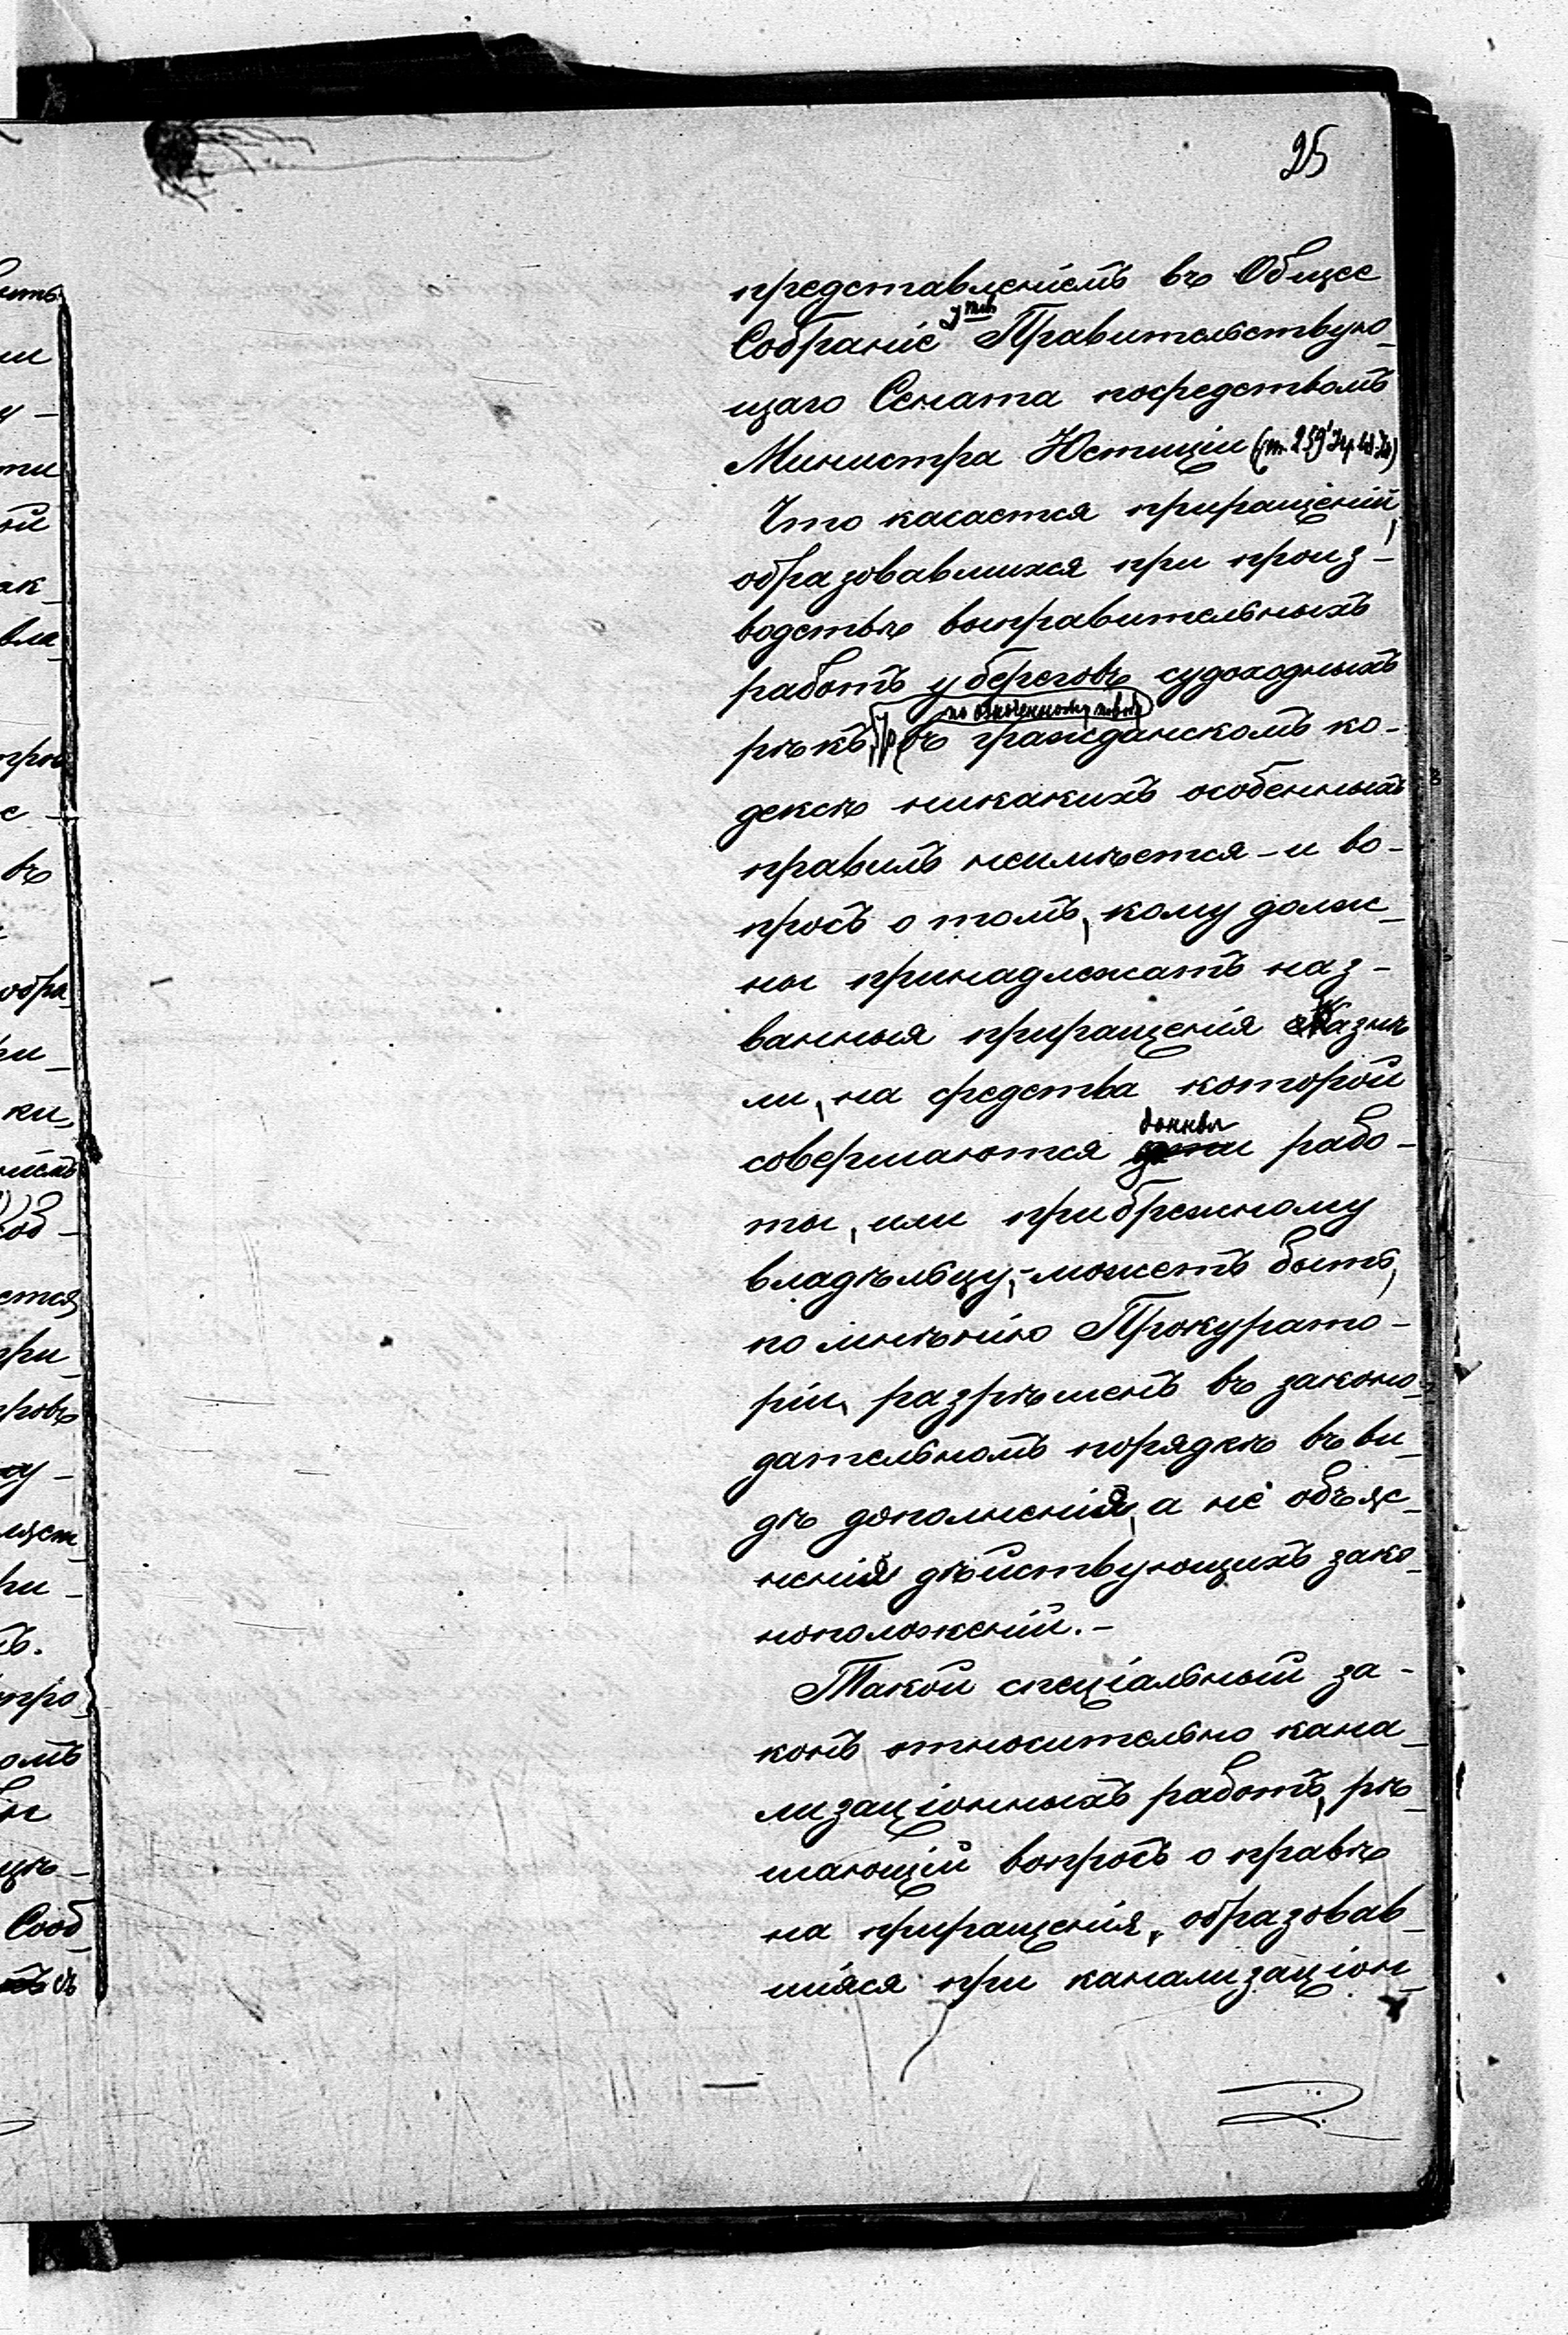 25
представленіемъ въ Общее
Собраніе Правительствую-
щаго Сената посредствомъ
Министра Юстиціи (ст. 259
Что касается приращеній,
образовавшихся при произ-
водствѣ выправительныхъ
работъ у береговъ судоходныхъ
рѣкъ, въ гражданскомъ ко-
дексѣ никакихъ особенныхъ
правилъ неимѣется - и во-
просъ о томъ, кому долж-
ны принадлежать наз-
ванныя приращенія казнѣ
ли, на средства которой
совершаются рабо-
ты, или прибрежному
владѣльцу, - можетъ быть,
по мнѣнію Прокурато-
ріи, разрѣшенъ въ законо-
дательномъ порядкѣ въ ви-
дѣ дополненія, а не объяс-
ненія дѣйствующихъ зако-
ноположеній. -
Такой спеціальный за-
конъ относительно кана-
лизаціонныхъ работъ, рѣ-
шающій вопросъ о правѣ
на приращенія, образовав-
шіяся при канализаціон-